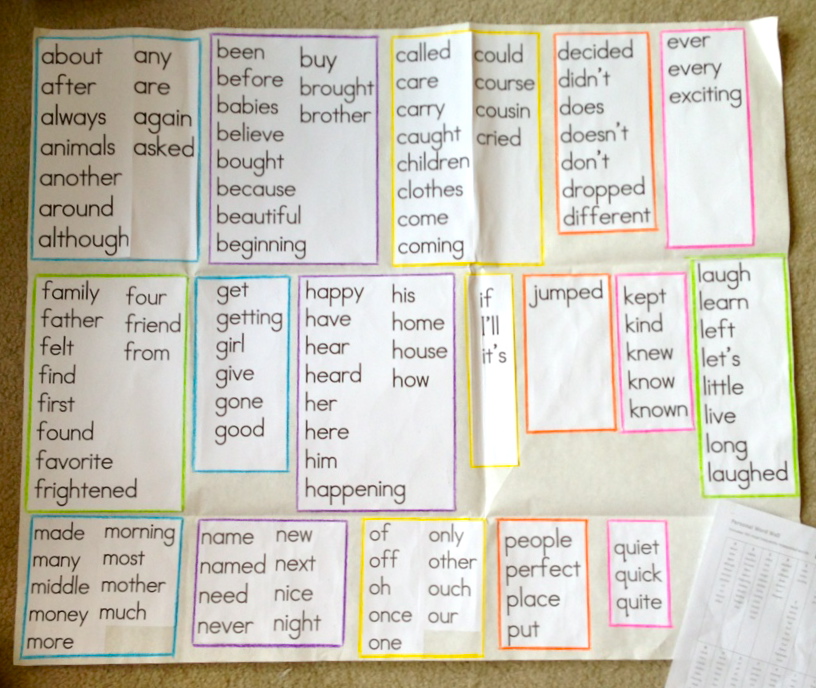 about
after
always
animals
another
around
although
any
are
again
asked
been
before
babies
believe
bought
because
beautiful
beginning
buy
brought
brother
called
care
carry
caught
children
clothes
come
coming
could
course
cousin
cried
decided
didn't
does
doesn't
don't
dropped
different
ever
every
exciting
family
father
felt
find
first
found
favorite
frightened
four
friend
from
get
getting
girl
give
gone
good
happy
have
hear
heard
her
here
him
happening
his
home
house
how
if
I'll
it's
jumped
kept
kind
knew
know
known
laugh
learn
left
let's
little
live
long
laughed
made
many
middle
money
more
morning
most
mother
much
name
named
need
never
new
next
nice
night
of
off
oh
once
one
only
other
ouch
our
people
perfect
place
put
quiet
quick
quite
Personal Word Wall